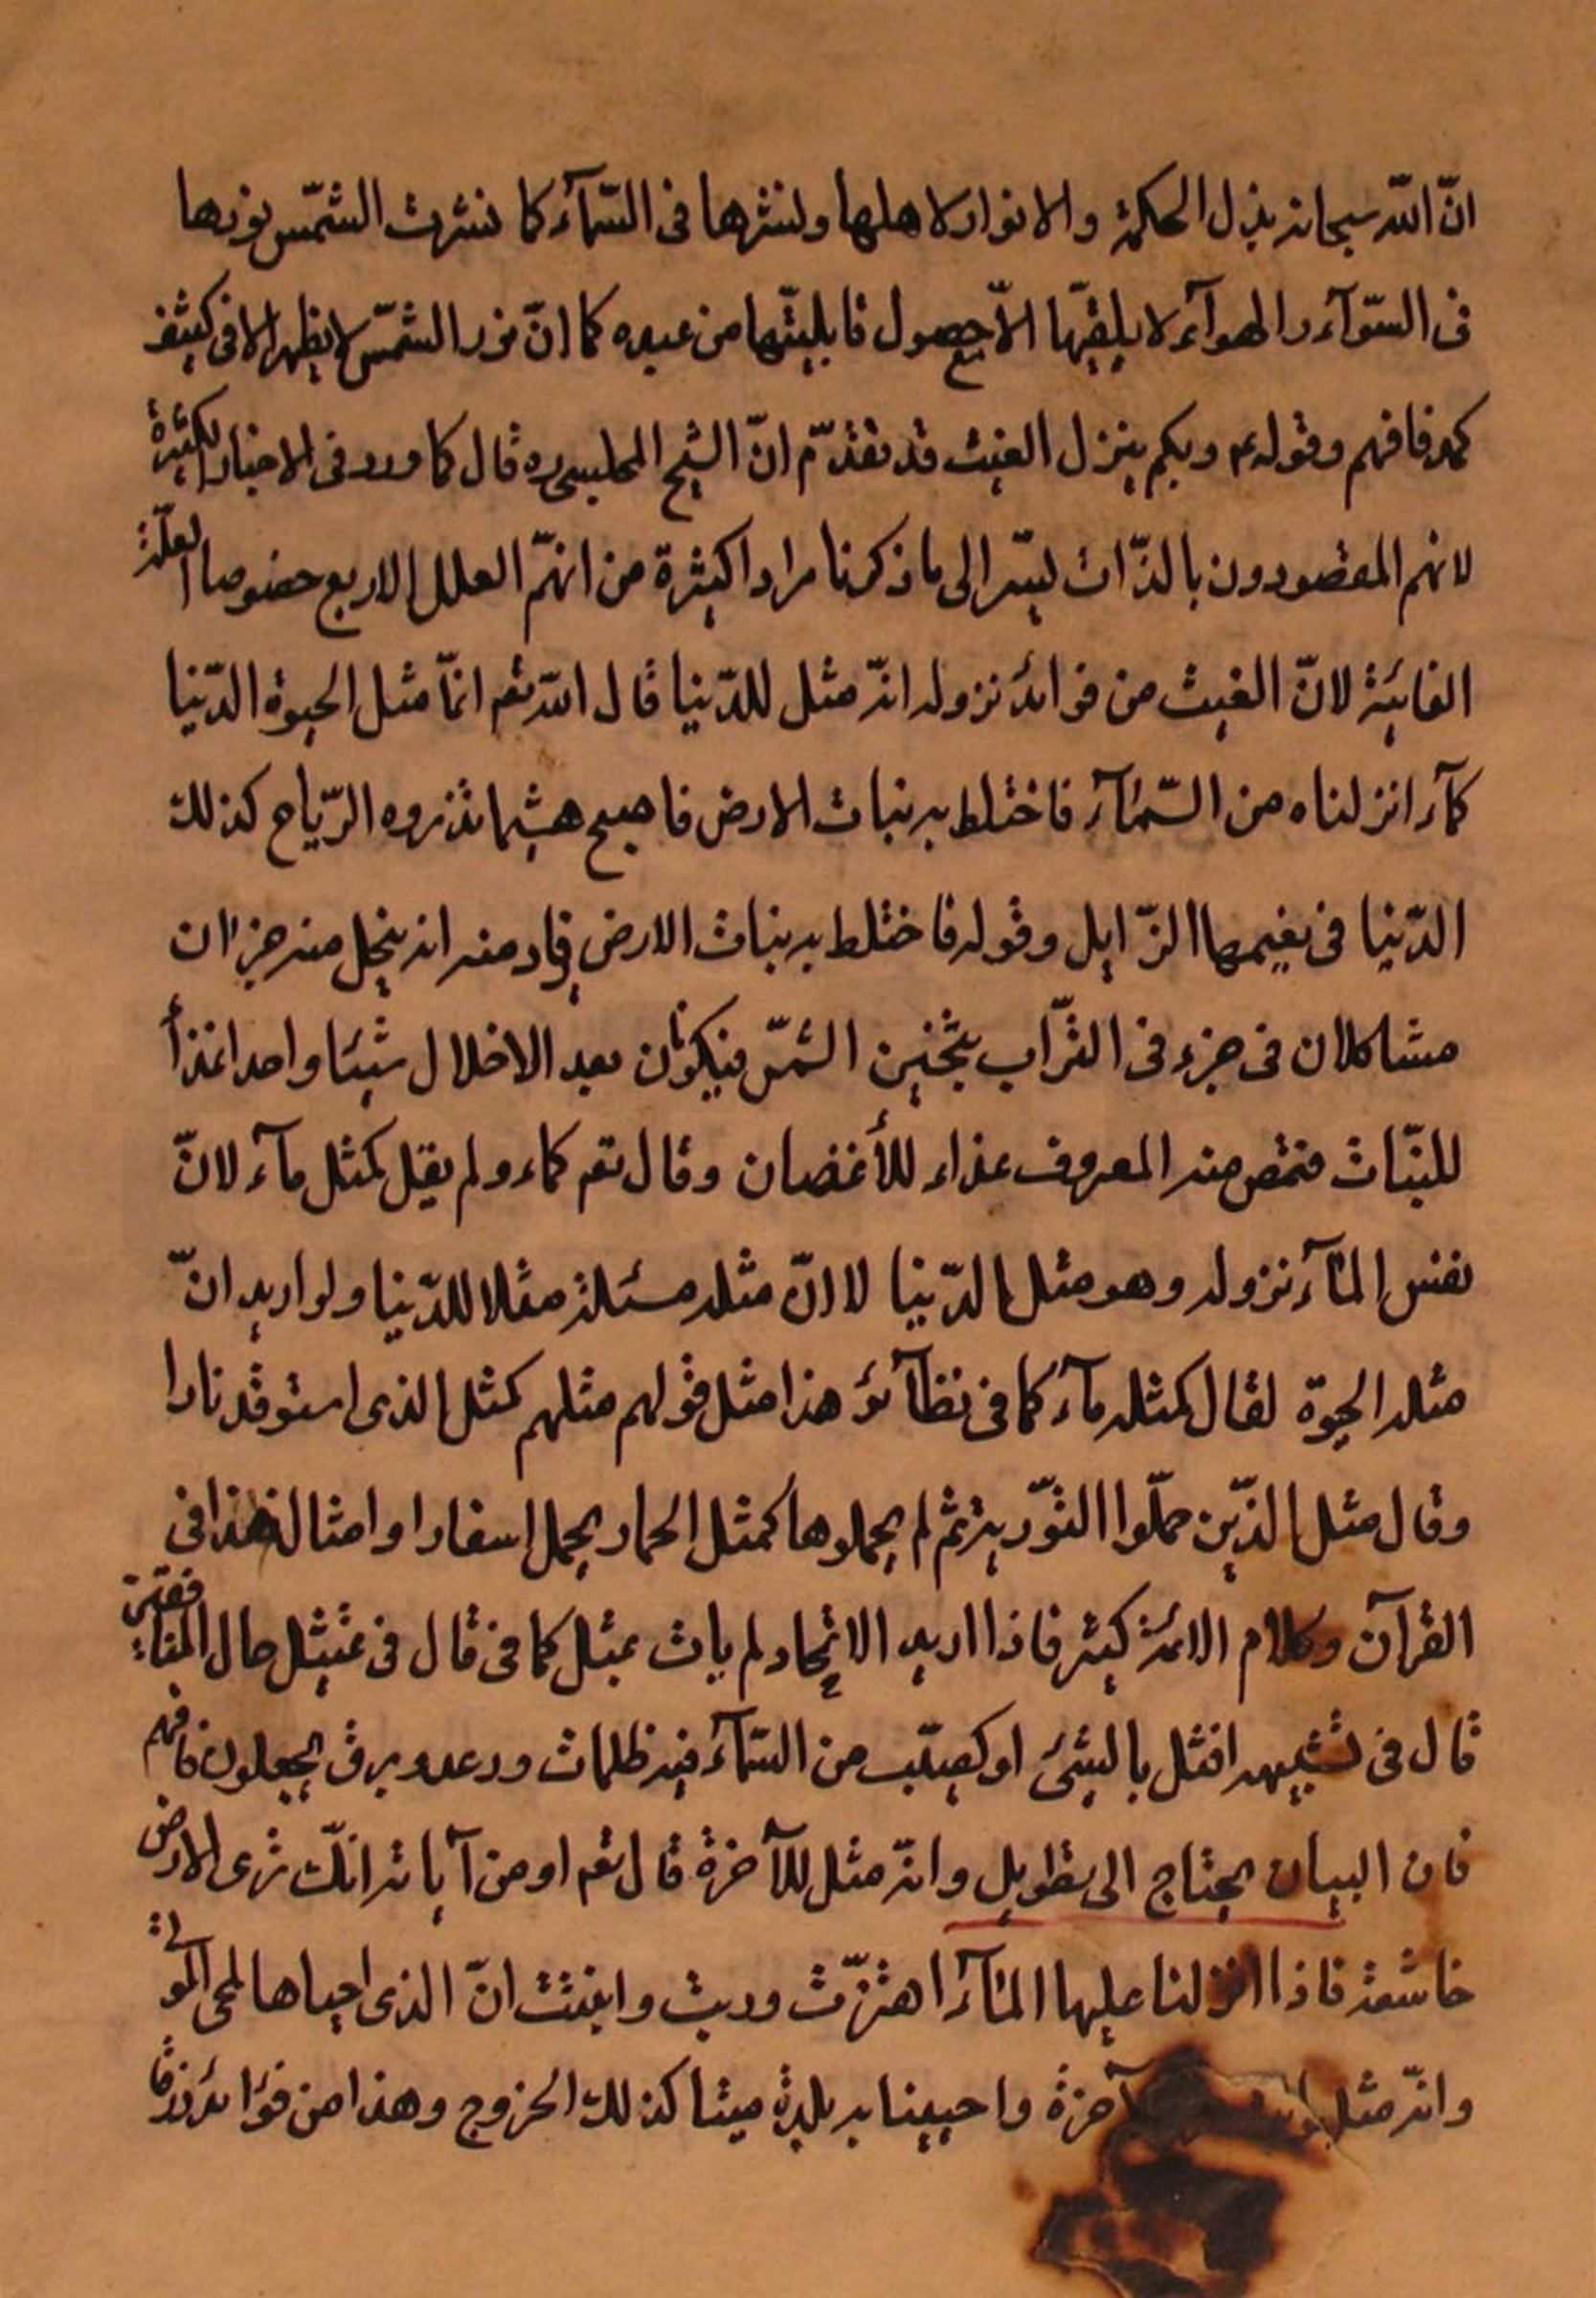 انّ اللّه سبحانه يبذل الحكمة والانوار لاهلها وينشرها فى السّمآء كما نشرت الشّمس نورها
فى السّوآء والهوآء لا يلقيّها الاّ حصول قابليّتها من عبده كما انّ نور الشّمس لا يظهر الا فى كثيف
كمد فافهم وقوله ع وبكم ينزل الغيث قد تقدّم انّ الشيخ المجلسى ره قال كما ورد فى الاخبار الكثيرة
لانهم المقصودون بالذّات يشير الى ما ذكرنا مرارا كثيرة من انهّم العلل الاربع خصوصا العلّة
الغائية لانّ الغيث من فوائد نزوله انّه مثل للدّنيا قال اللّه تعم انمّا مثل الحيوة الدّنيا
كمآء انزلناه من السّمآء فاختلط به نبات الارض فاصبح هشيما تذروه الرّياح كذلك
الدّنيا فى نعيمها الزّايل وقوله فاختلط به نبات الارض فاد منه انه ينحل منه جزان
مشاكلان فى جزء فى التّراب بتخين الشّمس فيكونان بعد الاخلال شيئا واحدا غذأ
للنّبات فتمص منه المعروف غذاء للأغصان وقال تعم كماء ولم يقل كمثل مآء لانّ
نفس المآء نزوله وهو مثل الدّنيا لا انّ مثله مسئلة مثلا للدّنيا ولو اريد انّ
مثله الحيوة لقال كمثله مآء كما فى نظآئر هذا مثل قولهم مثلهم كمثل الذى استوقد نارا
وقال مثل الذّين حمّلوا التوّرية ثم لم يحملوها كمثل الحمار يحمل اسفارا وامثال هذا فى
القرآن وكلام الائمة كثير فاذا اريد الاتحاد لم يات بمثل كما فى قال فى تمثيل حال المنافقين
قال فى تشبيهه افتل بالشئ او كصيّب من السّمآء فيه ظلمات ورعد وبرق يجعلون فافهم
فان البيان يحتاج الى تطويل وانّه مثل للآخرة قال تعم او من آياته انّك ترى الارض
خاشعة فاذا انزلنا عليها المآء اهتزّت وربت وانبتت انّ الذى احياها لمحى الموتى
وانّه مثل آخرة واحيينا به بلدة ميتا كذلك الخروج وهذا من فوائد